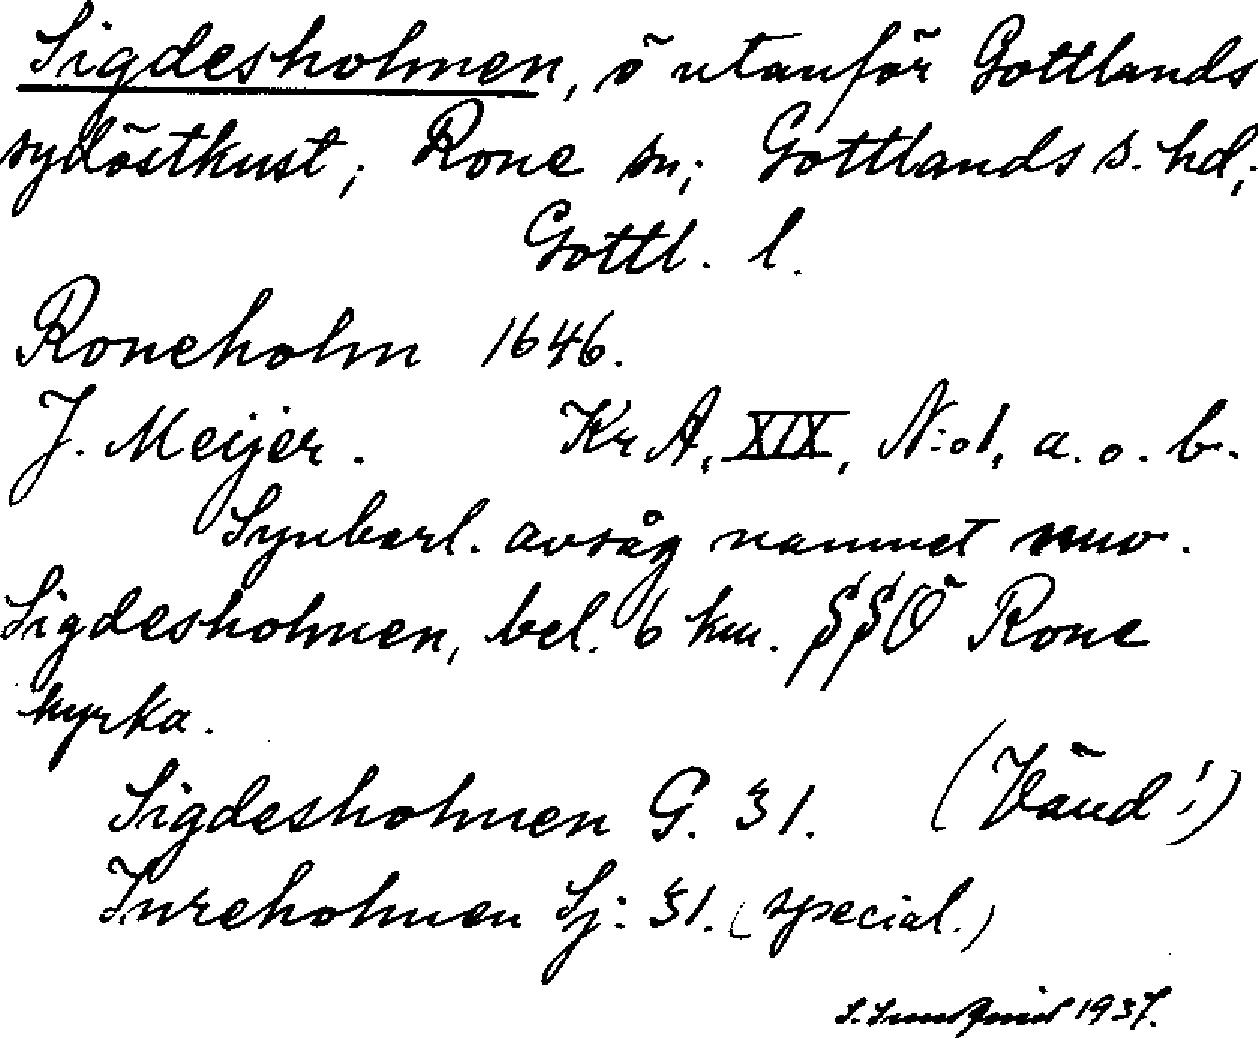 Sigdesholmen, ö utanför Gottlands
sydöstkust; Rone sn; Gottlands s. hd,;
Gottl. l.
Roneholm 1646.
J. Meijer. Kr A, XIX, N:o1, a. o. b.
Synbarl. avsåg namnet nuv.
Sigdesholmen, bel. 6 km. SSÖ Rone
kyrka.
Sigdesholmen G. 31. (Vänd!)
Inreholmen Sj: 31. (special.)
1937.